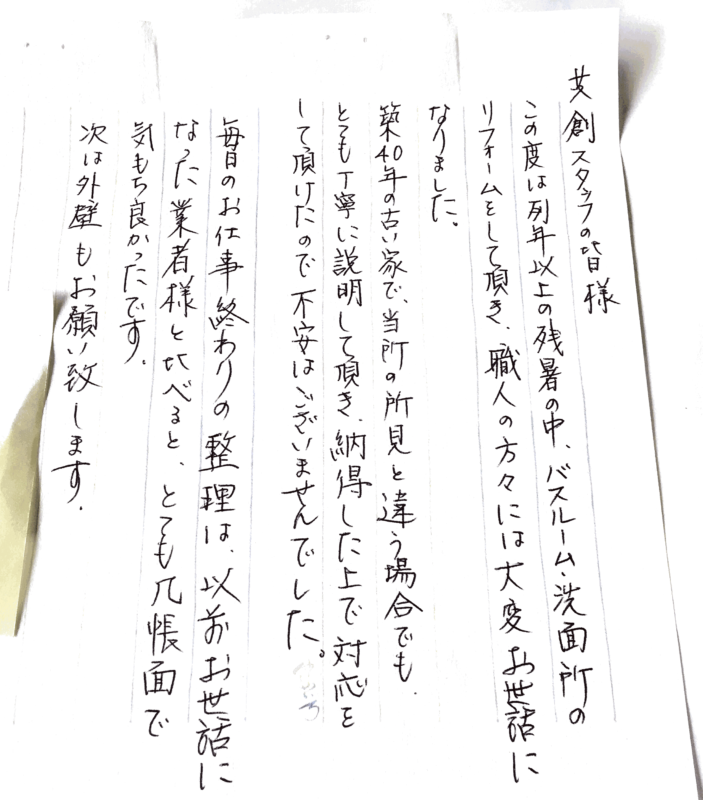 共創スタッフの皆様
この度は例年以上の残暑の中、バスルーム・洗面所の
リフォームをして頂き、職人の方々には大変お世話に
なりました。
築40年の古い家で、当所の所見と違う場合でも、
とても丁寧に説明して頂き、納得した上で対応を
して頂けたので不安はございませんでした。
毎日のお仕事終わりの整理は、以前お世話に
なった業者様と比べると、とても几帳面で
気もち良かったです。
次は外壁もお願い致します。